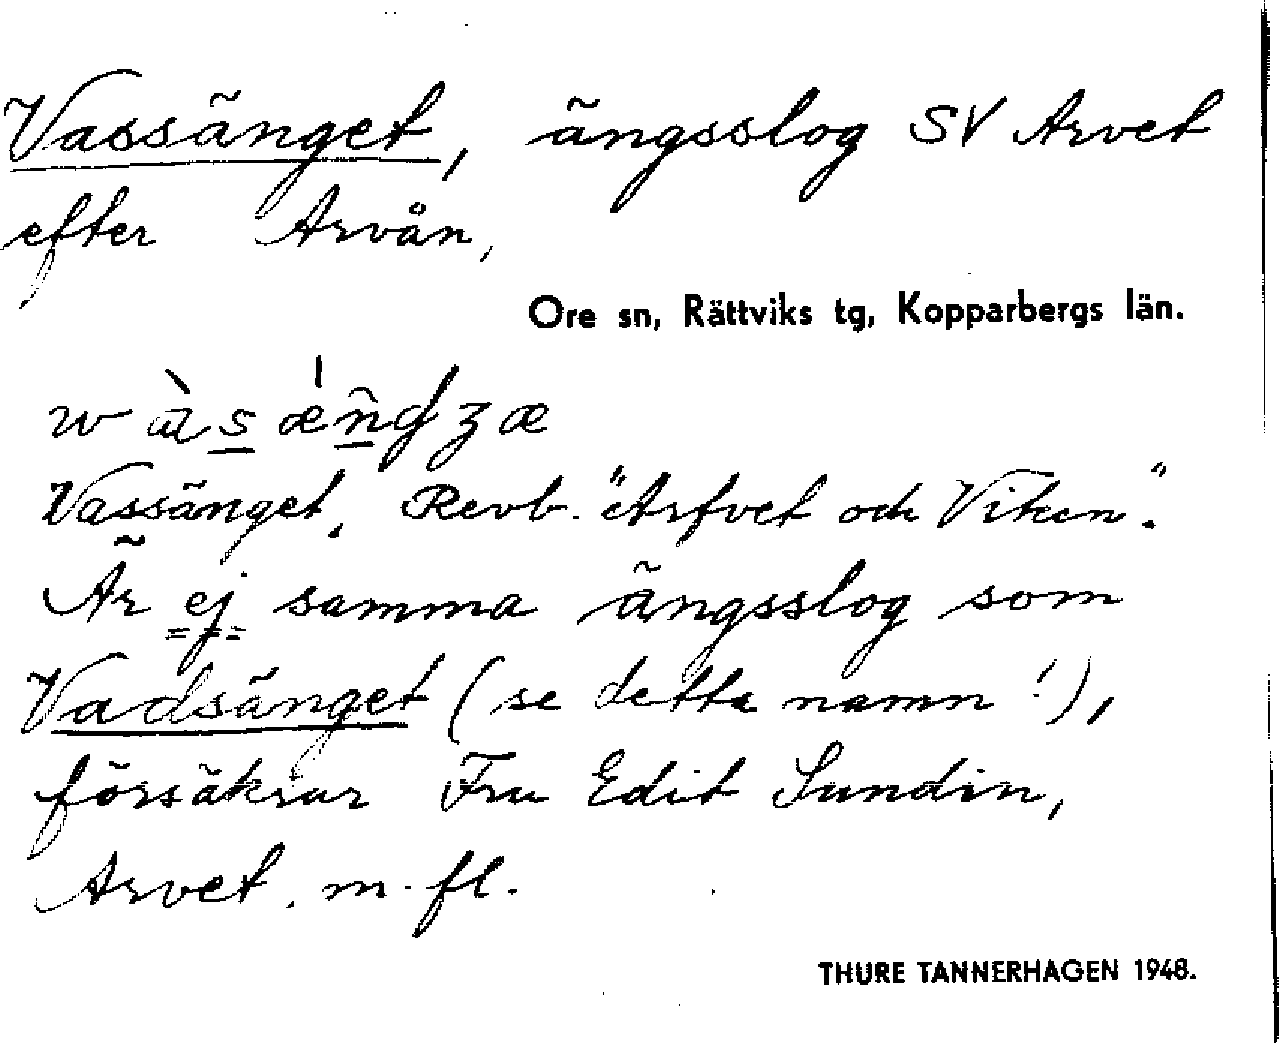 Vassänget, ängsslog SV Arvet
efter Arvån,
Ore sn, Rättviks tg, Kopparbergs län.
Vassänget. Revb. "Arfvet och Viken".
Är ej samma ängsslog som
Vadsänget (se detta namn!),
försäkrar Fru Edit Sundin,
Arvet. m. fl.
THURE TANNERHAGEN 1948.